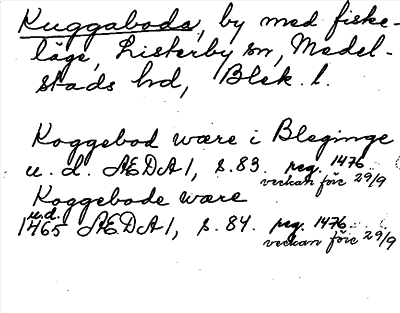 Kuggaboda, by med fiske-
läge, Listerby sn, Medel-
stads hd, Blek. l.
Koggebod være i Bleginge
u. d. ÆDA 1, s. 83. reg. 1476
veckan före 29/9
Koggebode være
u.d.
1465 ÆDA 1, s. 84. reg. 1476
veckan före 29/9